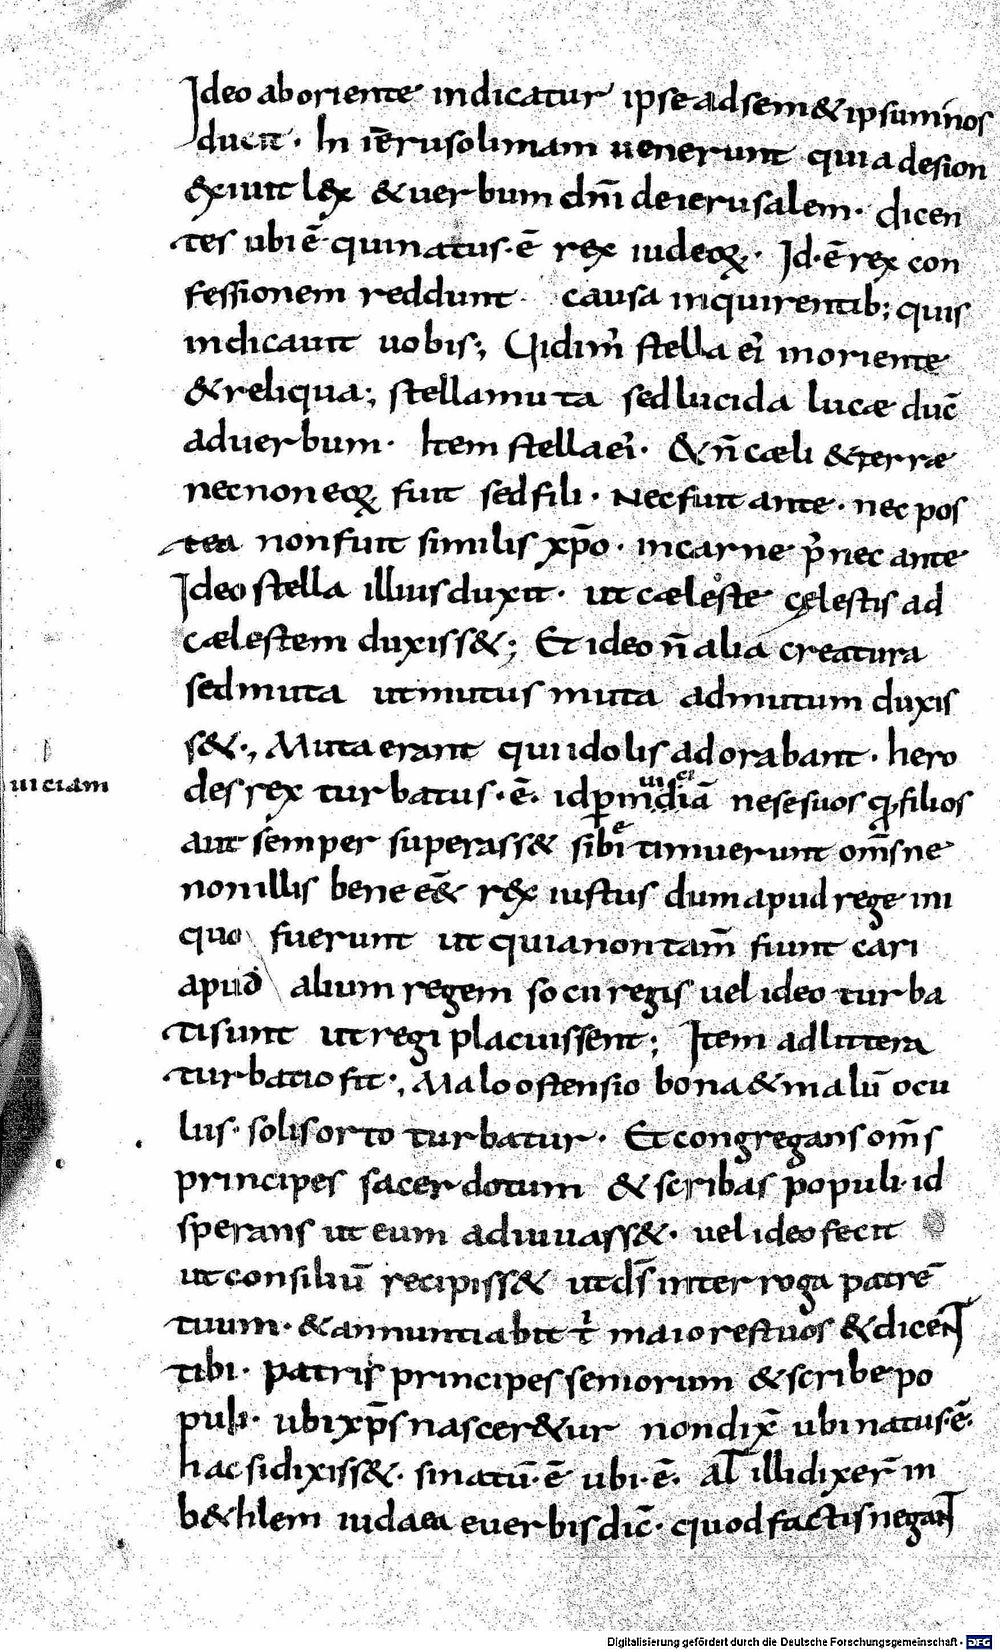 Ideo aboriente indicatur ipse ad sem & ipsum innos
ducit · In ierusolimam uenerunt quia desion
exiuit lex & uerbum dnī deierusalem · dicen
tes ubi ē qui natus · ē rex iudeoꝝ · Id · ē rex con
fessionem reddunt causa inquirentib; quis
indicauit uobis; Uidim᾽ stella ei᾽ in oriente
& reliqua; stella muta sed lucida lucæ duc̄
aduerbum · Item stella ei᾽ · & n̄ cæli & terræ
nec non eoꝝ fuit sed fili · Nec fuit ante · nec pos
tea non fuit similis xp̄o · in carne p᾽ nec ante
Ideo stella illius duxit · ut cæleste cęlestis ad
cælestem duxiss&; Et ideo n̄ alia creatura
sed muta ut mutus muta ad mutum duxis
s& ·, Muta erant qui idolis adorabant · hero
des rex turbatus · ē · id ꝑ inuidiā ne se suos ꝙ filios
uiciam
aut semper superass& sibi timuerunt om̄s ne
non illis bene eē& rex iustus dum apud rege ini
quo fuerunt ut quia non tam̄ fiunt cari
apud alium regem socii regis uel ideo turba
ti sunt ut regi placuissent; Item ad littera
turbatio fit ·, Malo ostensio bona & malū ocu
lus · solis orto turbatur · Et congregans om̄s
principes sacerdotum & scribas populi · id
sperans ut eum adiuuass& · uel ideo fecit
ut consiliū recipiss& ut ds̄ interroga patrē
tuum · & annuntiabit t᾽ maiores tuos & dicent
tibi · patris principes seniorum & scribe po
puli · ubi xp̄s nascer&ur non dix̄ ubi natus · ē ·
hac si dixiss& · si natū · ē ubi · ē · At illi dixer̄ in
b&hlem iudaea euerbis dic̄ · quod factis negant
Digitalisierung gefördert durch die Deutsche Forschungsgemeinschaft · DFG